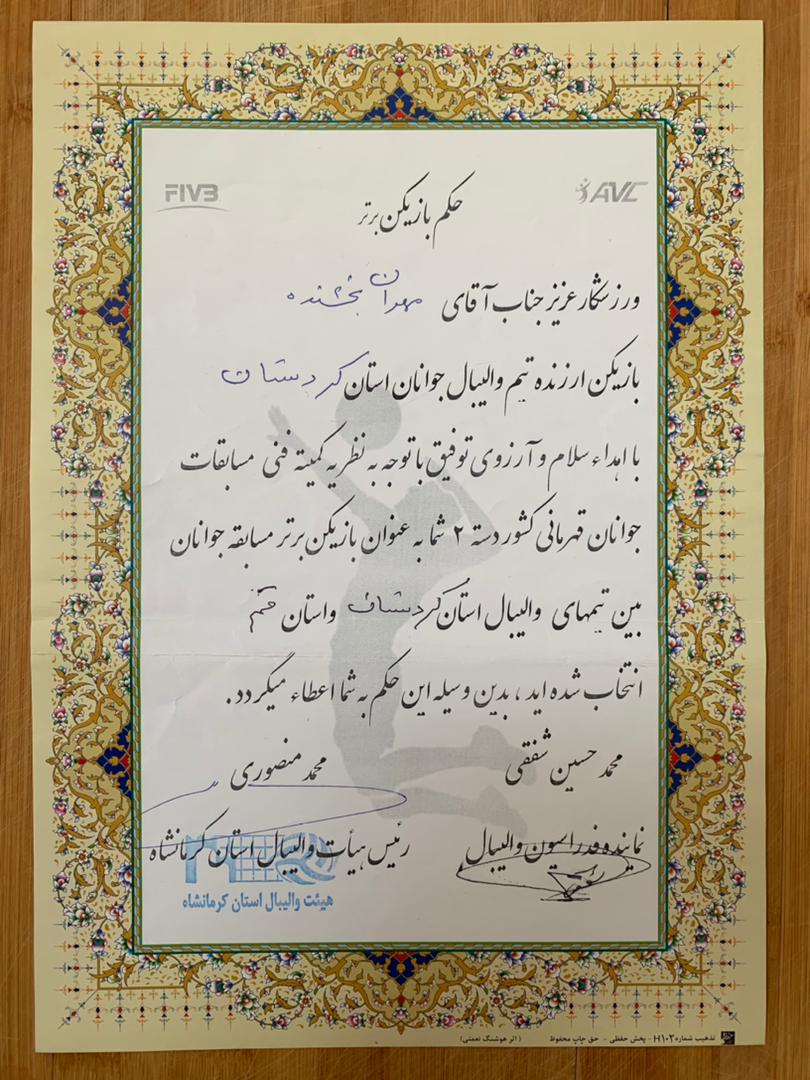 FIVB
AVC
حکم بازیکن برتر
ورزشکار عزیز جناب آقای مهران بخشنده
بازیکن ارزنده تیم والیبال جوانان استان کردستان
با اهداء سلام و آرزوی توفیق با توجه به نظریه کمیته فنی مسابقات
جوانان قهرمانی کشور دسته ۲ شما به عنوان بازیکن برتر مسابقه جوانان
بین تیمهای والیبال استان کردستان و استان قم
انتخاب شده اید، بدین وسیله این حکم به شما اعطاء میگردد.
محمد حسین شفقی
محمد منصوری
نماینده فدراسیون والیبال
رئیس هیأت والیبال استان کرمانشاه
هیئت والیبال استان کرمانشاه
تذهیب شماره H۱۰۲ - پخش حفظی - حق چاپ محفوظ
(اثر هوشنگ نعمتی)